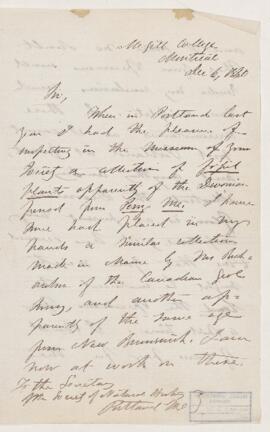 McGill College
Montreal
Dec 6, 1860
Sir,
When in Portland last
year I had the pleasure of
inspecting in the Museum of your
Society a collection of fossil
plants apparently of the Devonian
period from Perry Me. I have
since had placed in my
hands a similar collection
made in Maine by Mr Rich-
ardson of the Canadian Geol
Survey, and another ap-
parently of the same age
from New Brunswick. I am
now at work on these.
To the Secretary
Nat. History
Portland Me